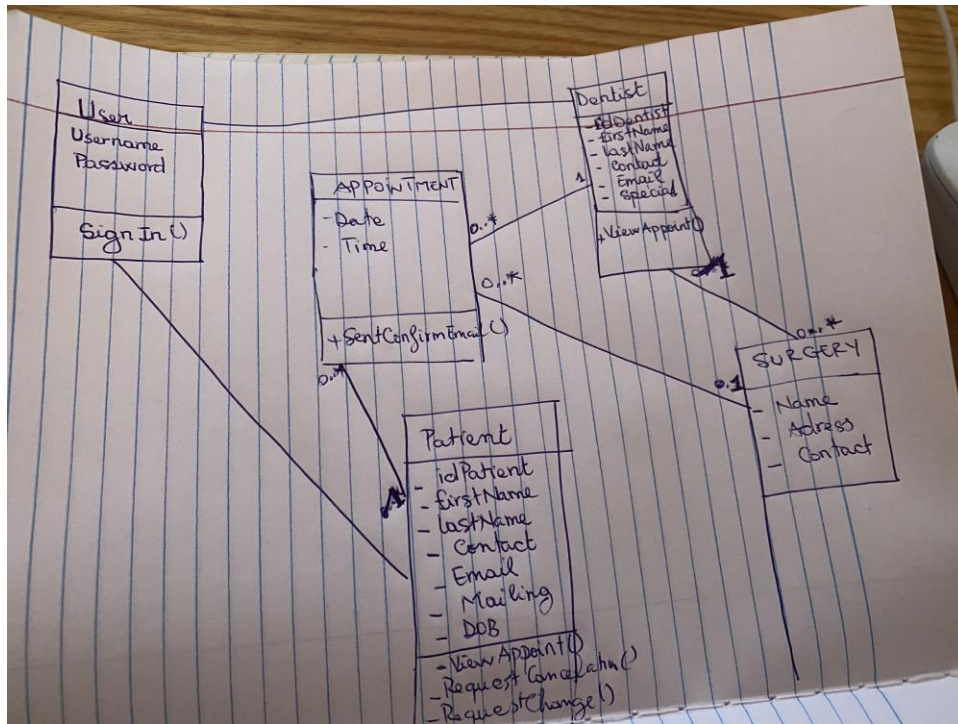 User
Username
Password
Sign In()
APPOINTMENT
- Date
- Time
+SentConfirmEmail()
Dentist
- idDentist
- firstName
- lastName
- Contact
- Email
- Special
+ViewAppoint()
1
0..*
0..*
1
0..*
0..1
0..*
1
SURGERY
- Name
- Adress
- Contact
Patient
- idPatient
- firstName
- lastName
- Contact
- Email
- Mailing
- DOB
- View Appoint()
- Request Cancelation()
- RequestChange()